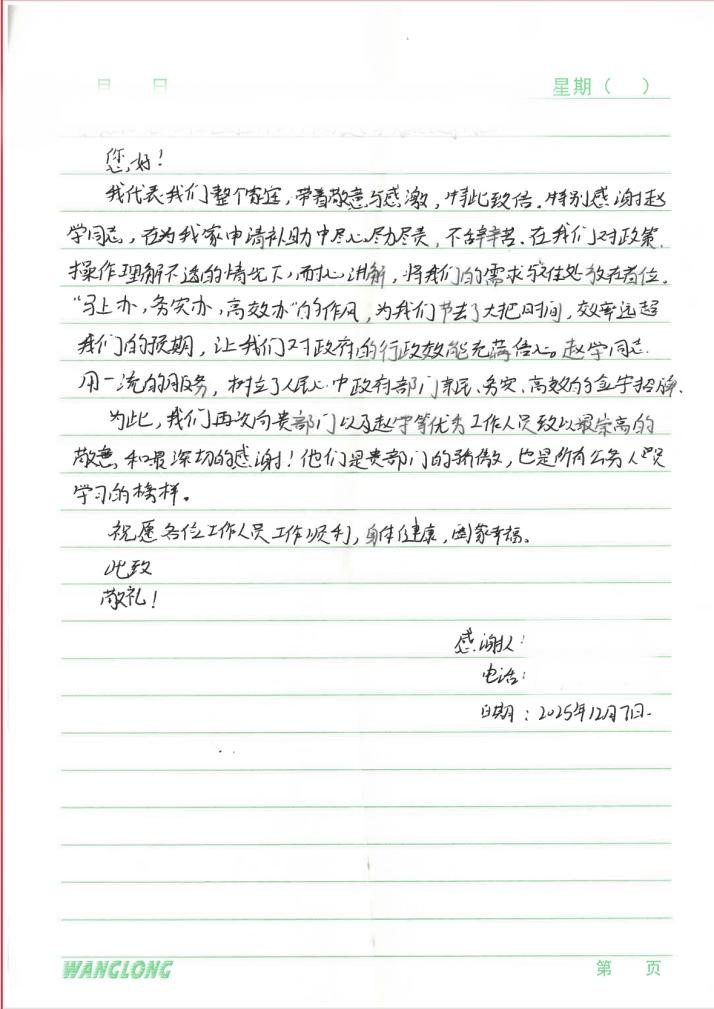 日 日 星期( )
您好!
我代表我们整个家庭,带着敬意与感激,特此致信。特别感谢赵
学同志,在为我家申请补助中尽心尽力尽责,不辞辛苦。在我们对政策、
操作理解不透的情况下,耐心讲解,将我们的需求与难处放在首位。
“马上办,务实办,高效办”的作风,为我们节去了大把时间,效率远超
我们的预期,让我们对政府的行政效能充满信心。赵学同志
用一流的服务,树立了人民心中政府部门亲民、务实、高效的金字招牌。
为此,我们再次向贵部门以及赵学等优秀工作人员致以最崇高的
敬意和最深切的感谢!他们是贵部门的骄傲,也是所有公务人员
学习的榜样。
祝愿各位工作人员工作顺利,身体健康,阖家幸福。
此致
敬礼!
感谢人:
电话:
日期:2025年12月7日.
WANGLONG 第 页